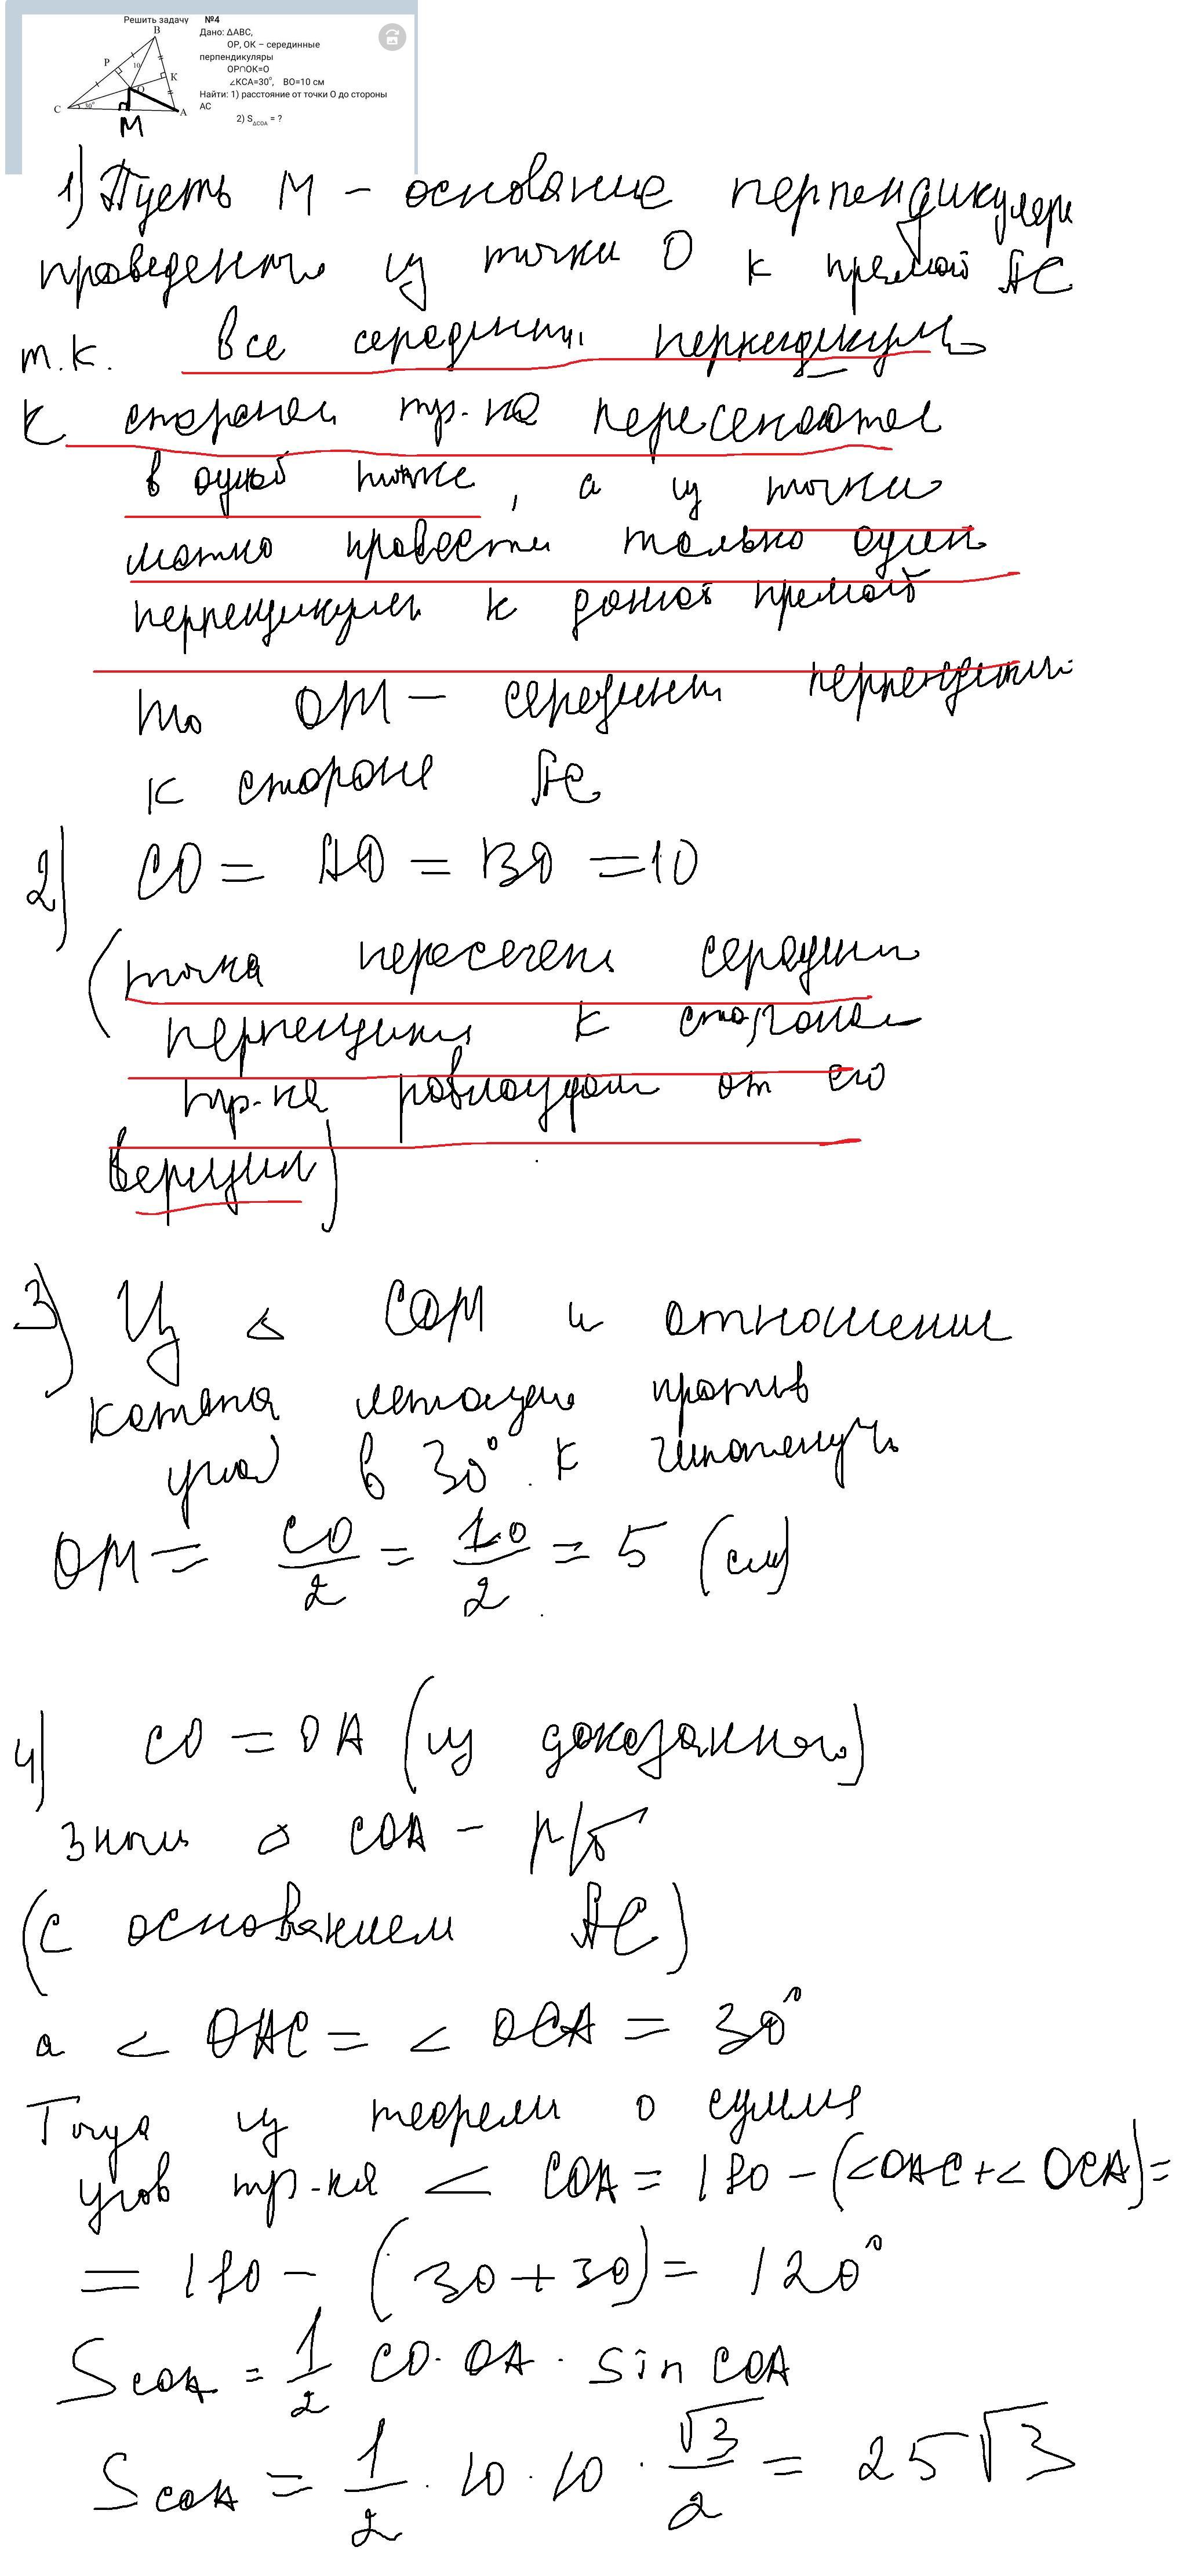 Решить задачу №4
Дано: ΔABC,
OP, OK – серединные
перпендикуляры
OP∩OK=O
∠KCA=30°, BO=10 см
Найти: 1) расстояние от точки O до стороны
AC
2) S ΔCOA = ?
B
P
10
K
O
C
30°
A
M
1) Пусть M – основание перпендикуляра
проведенного из точки O к прямой AC
т.к. все серединн перпендикуляр
к сторонам тр-ка пересекаются
в одной точке, а из точки
можно провести только один
перпендикуляр к данной прямой
то OM – серединн перпендикуляр
к стороне AC
2) CO = AO = BO = 10
(точка пересечен середин
перпендикуля к сторонам
тр-ка равноудал от его
вершин)
3) Из Δ COM и отношения
катета лежащего против
угла в 30° к гипотенузе
OM = CO/2 = 10/2 = 5 (см)
4) CO = OA (из доказанного)
значит Δ COA – р/б
(с основанием AC)
а < OAC = < OCA = 30°
Тогда из теоремы о сумме
углов тр-ка < COA = 180 – (<OAC + < OCA) =
= 180 – (30 + 30) = 120°
S COA = 1/2 CO · OA · sin COA
S COA = 1/2 · 10 · 10 · √3/2 = 25√3